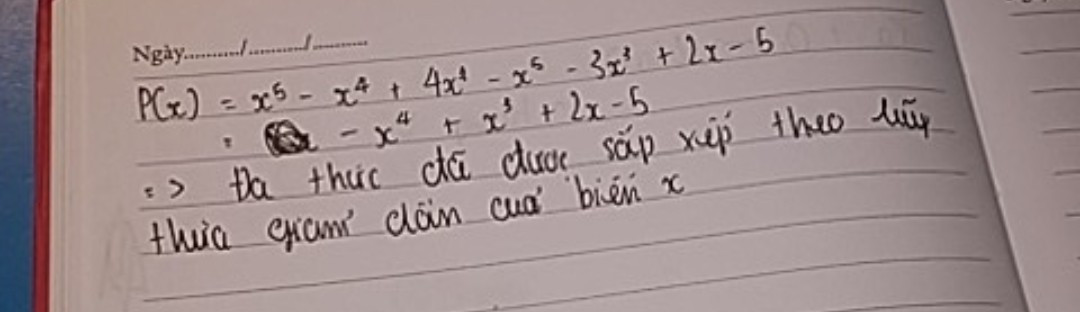 Ngày........../........../..........
P(x) = x⁵ - x⁴ + 4x³ - x⁵ - 3x³ + 2x - 5
= - x⁴ + x³ + 2x - 5
=> Đa thức đã được sắp xếp theo lũy
thừa giảm dần của biến x